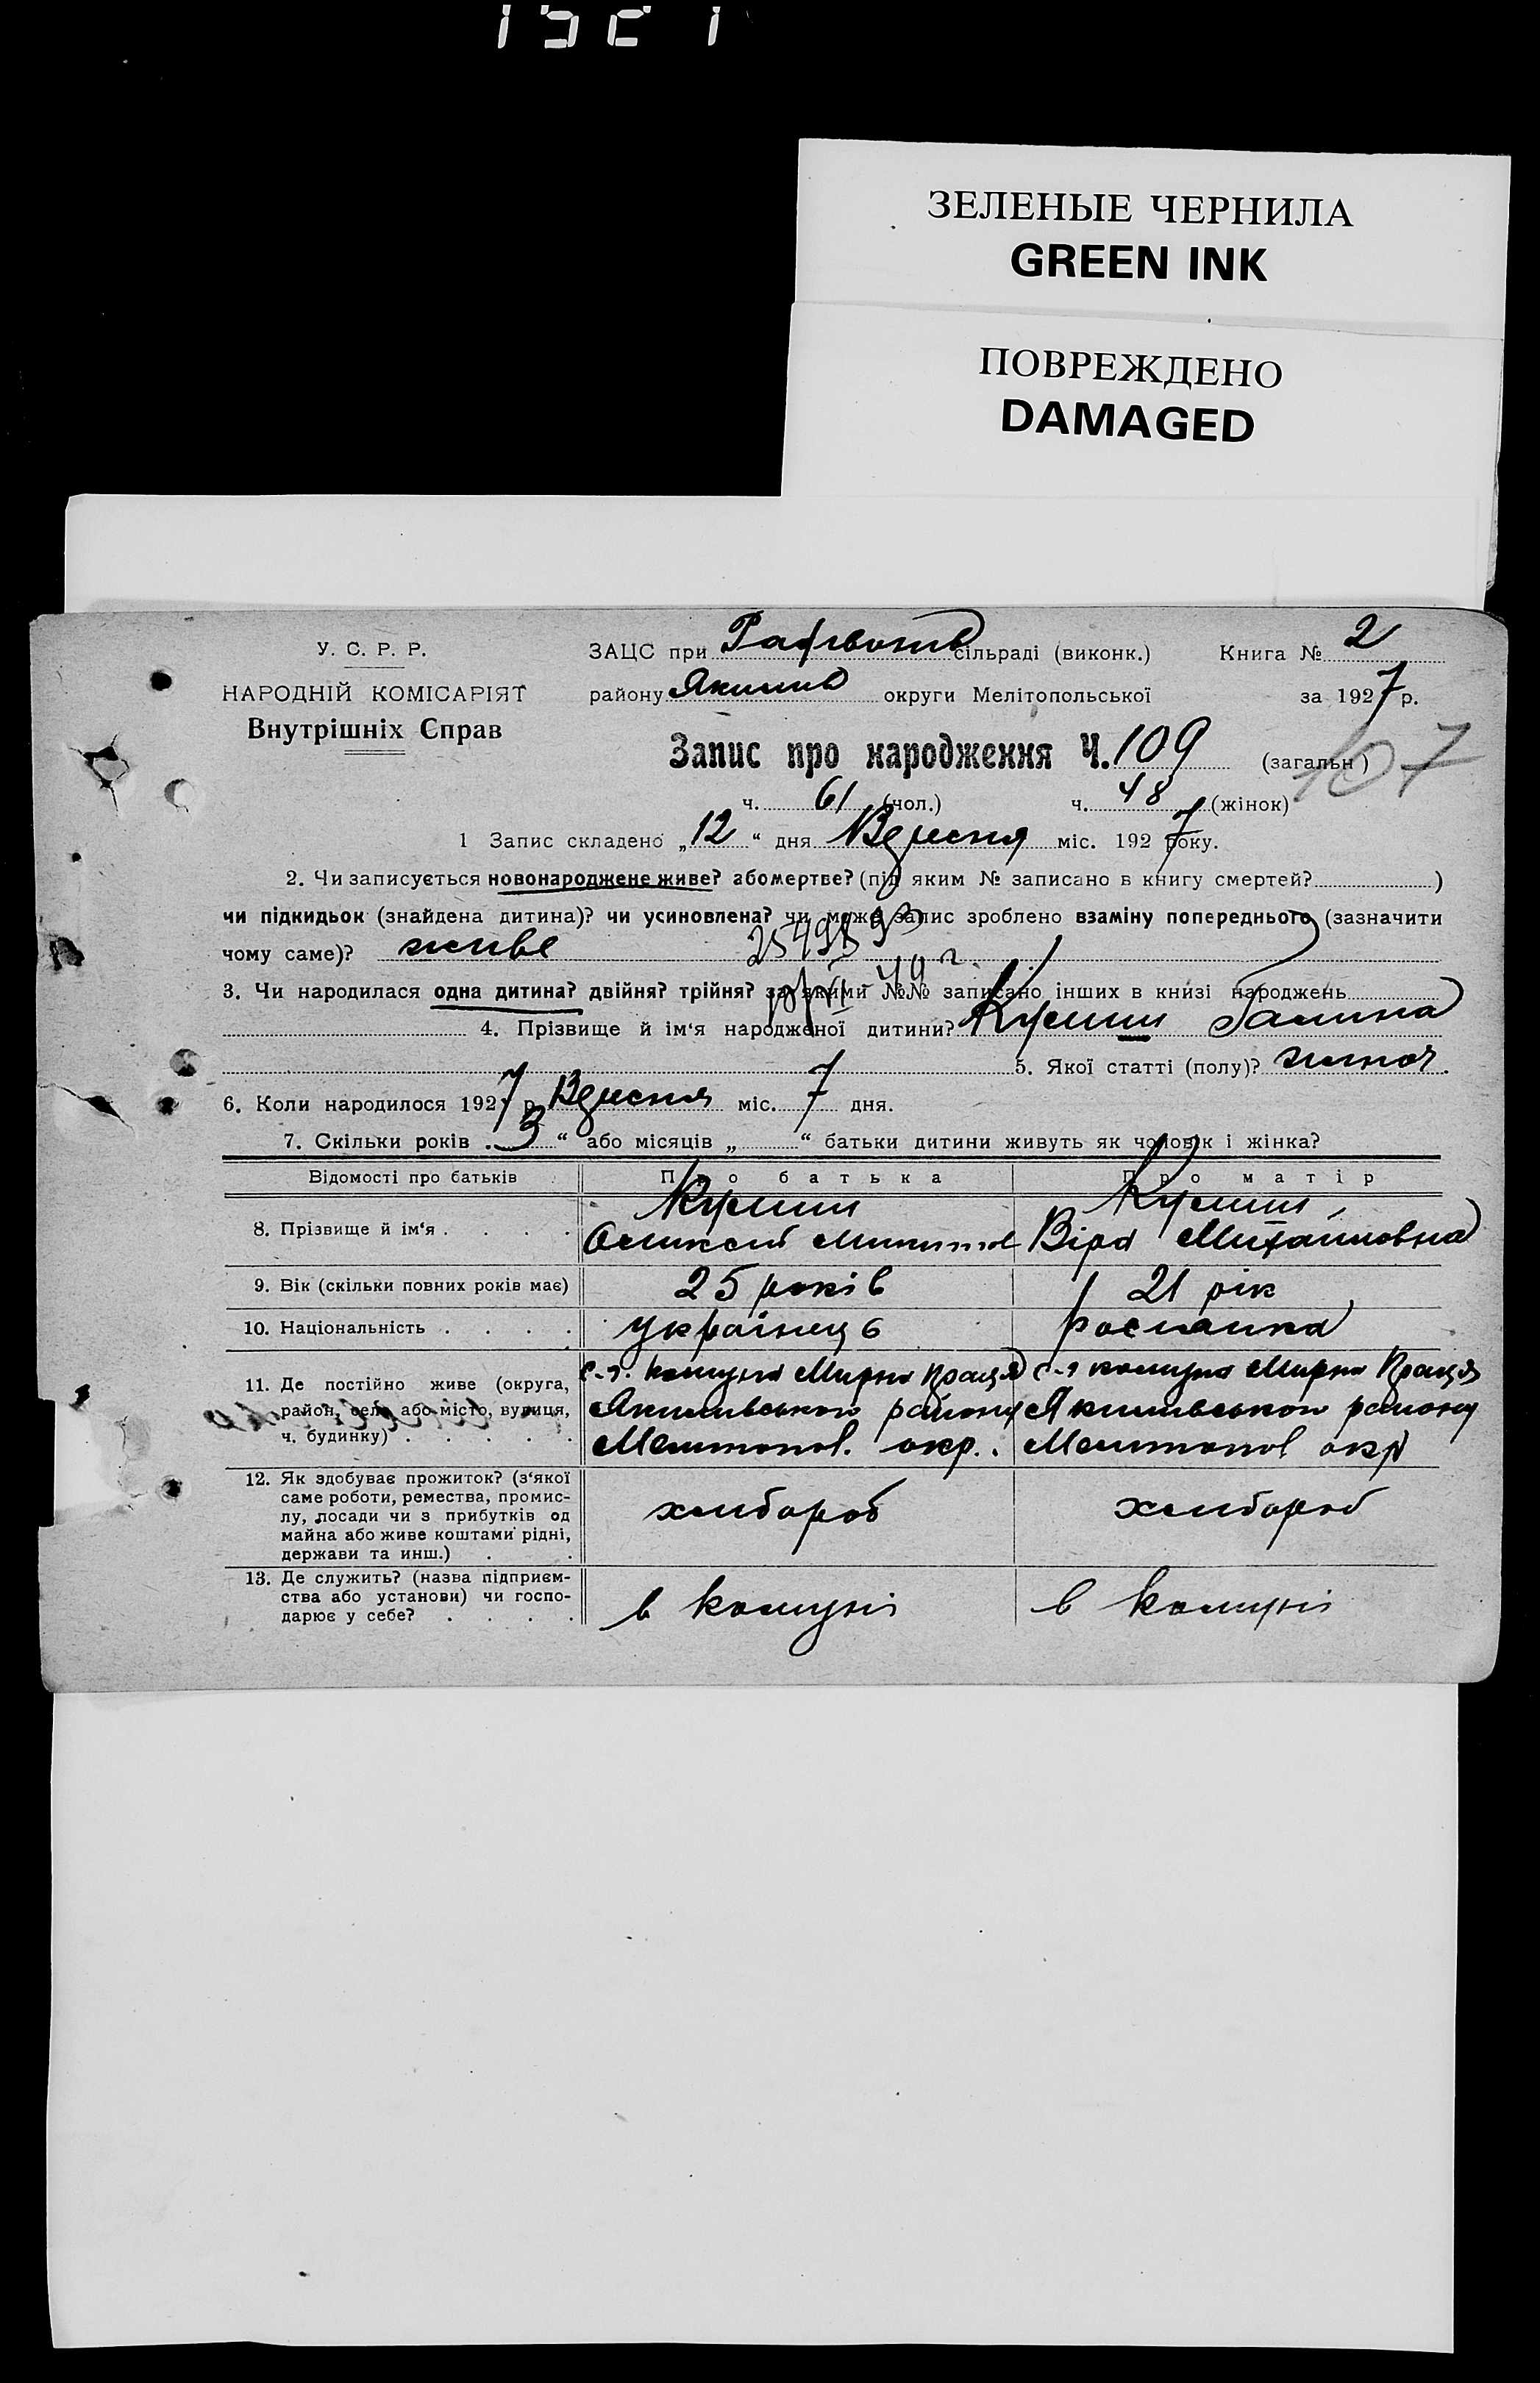 ЗЕЛЕНЫЕ ЧЕРНИЛА
GREEN INK
ПОВРЕЖДЕНО
DAMAGED
У. С. Р. Р.
НАРОДНІЙ КОМІСАРІЯТ
Внутрішніх Справ
ЗАЦС при сільраді (виконк.) Книга № 2
району Якимів округи Мелітопольської за 1927 р.
Запис про народження Ч. 109 (загальн) 107
ч. 61 (чол.) ч. 48 (жінок)
1 Запис складено „12“ дня Вересня міс. 1927 року.
2. Чи записується новонароджене живе? або мертве? (під яким № записано в книгу смертей? )
чи підкидьок (знайдена дитина)? чи усиновлена? чи може запис зроблено взаміну попереднього (зазначити
чому саме)? живе
3. Чи народилася одна дитина? двійня? трійня? за якими №№ записано інших в книзі народжень
4. Прізвище й ім‘я народженої дитини? Галина
5. Якої статті (полу)? жіноч.
6. Коли народилося 1927 р. Вересня міс. 7 дня.
7. Скільки років „3“ або місяців „ “ батьки дитини живуть як чоловік і жінка?
Відомості про батьків Про батька Про матір
8. Прізвище й ім‘я . . . . Віра Михайловна
9. Вік (скільки повних років має) 25 років 21 рік
10. Національність . . . . українець росіянка
11. Де постійно живе (округа, с-г. комуна Мирна Праця с-г комуна Мирна Праця
район, село або місто, вулиця, Якимівського району Якимівського району
ч. будинку) . . . . . Мелітопол. окр. Мелітопол окр
12. Як здобуває прожиток? (з‘якої
саме роботи, ремества, промис-
лу, посади чи з прибутків од хлібороб хлібороб
майна або живе коштами рідні,
держави та инш.) . .
13. Де служить? (назва підприєм-
ства або установи) чи госпо- в комуні в комуні
дарює у себе? . . . .